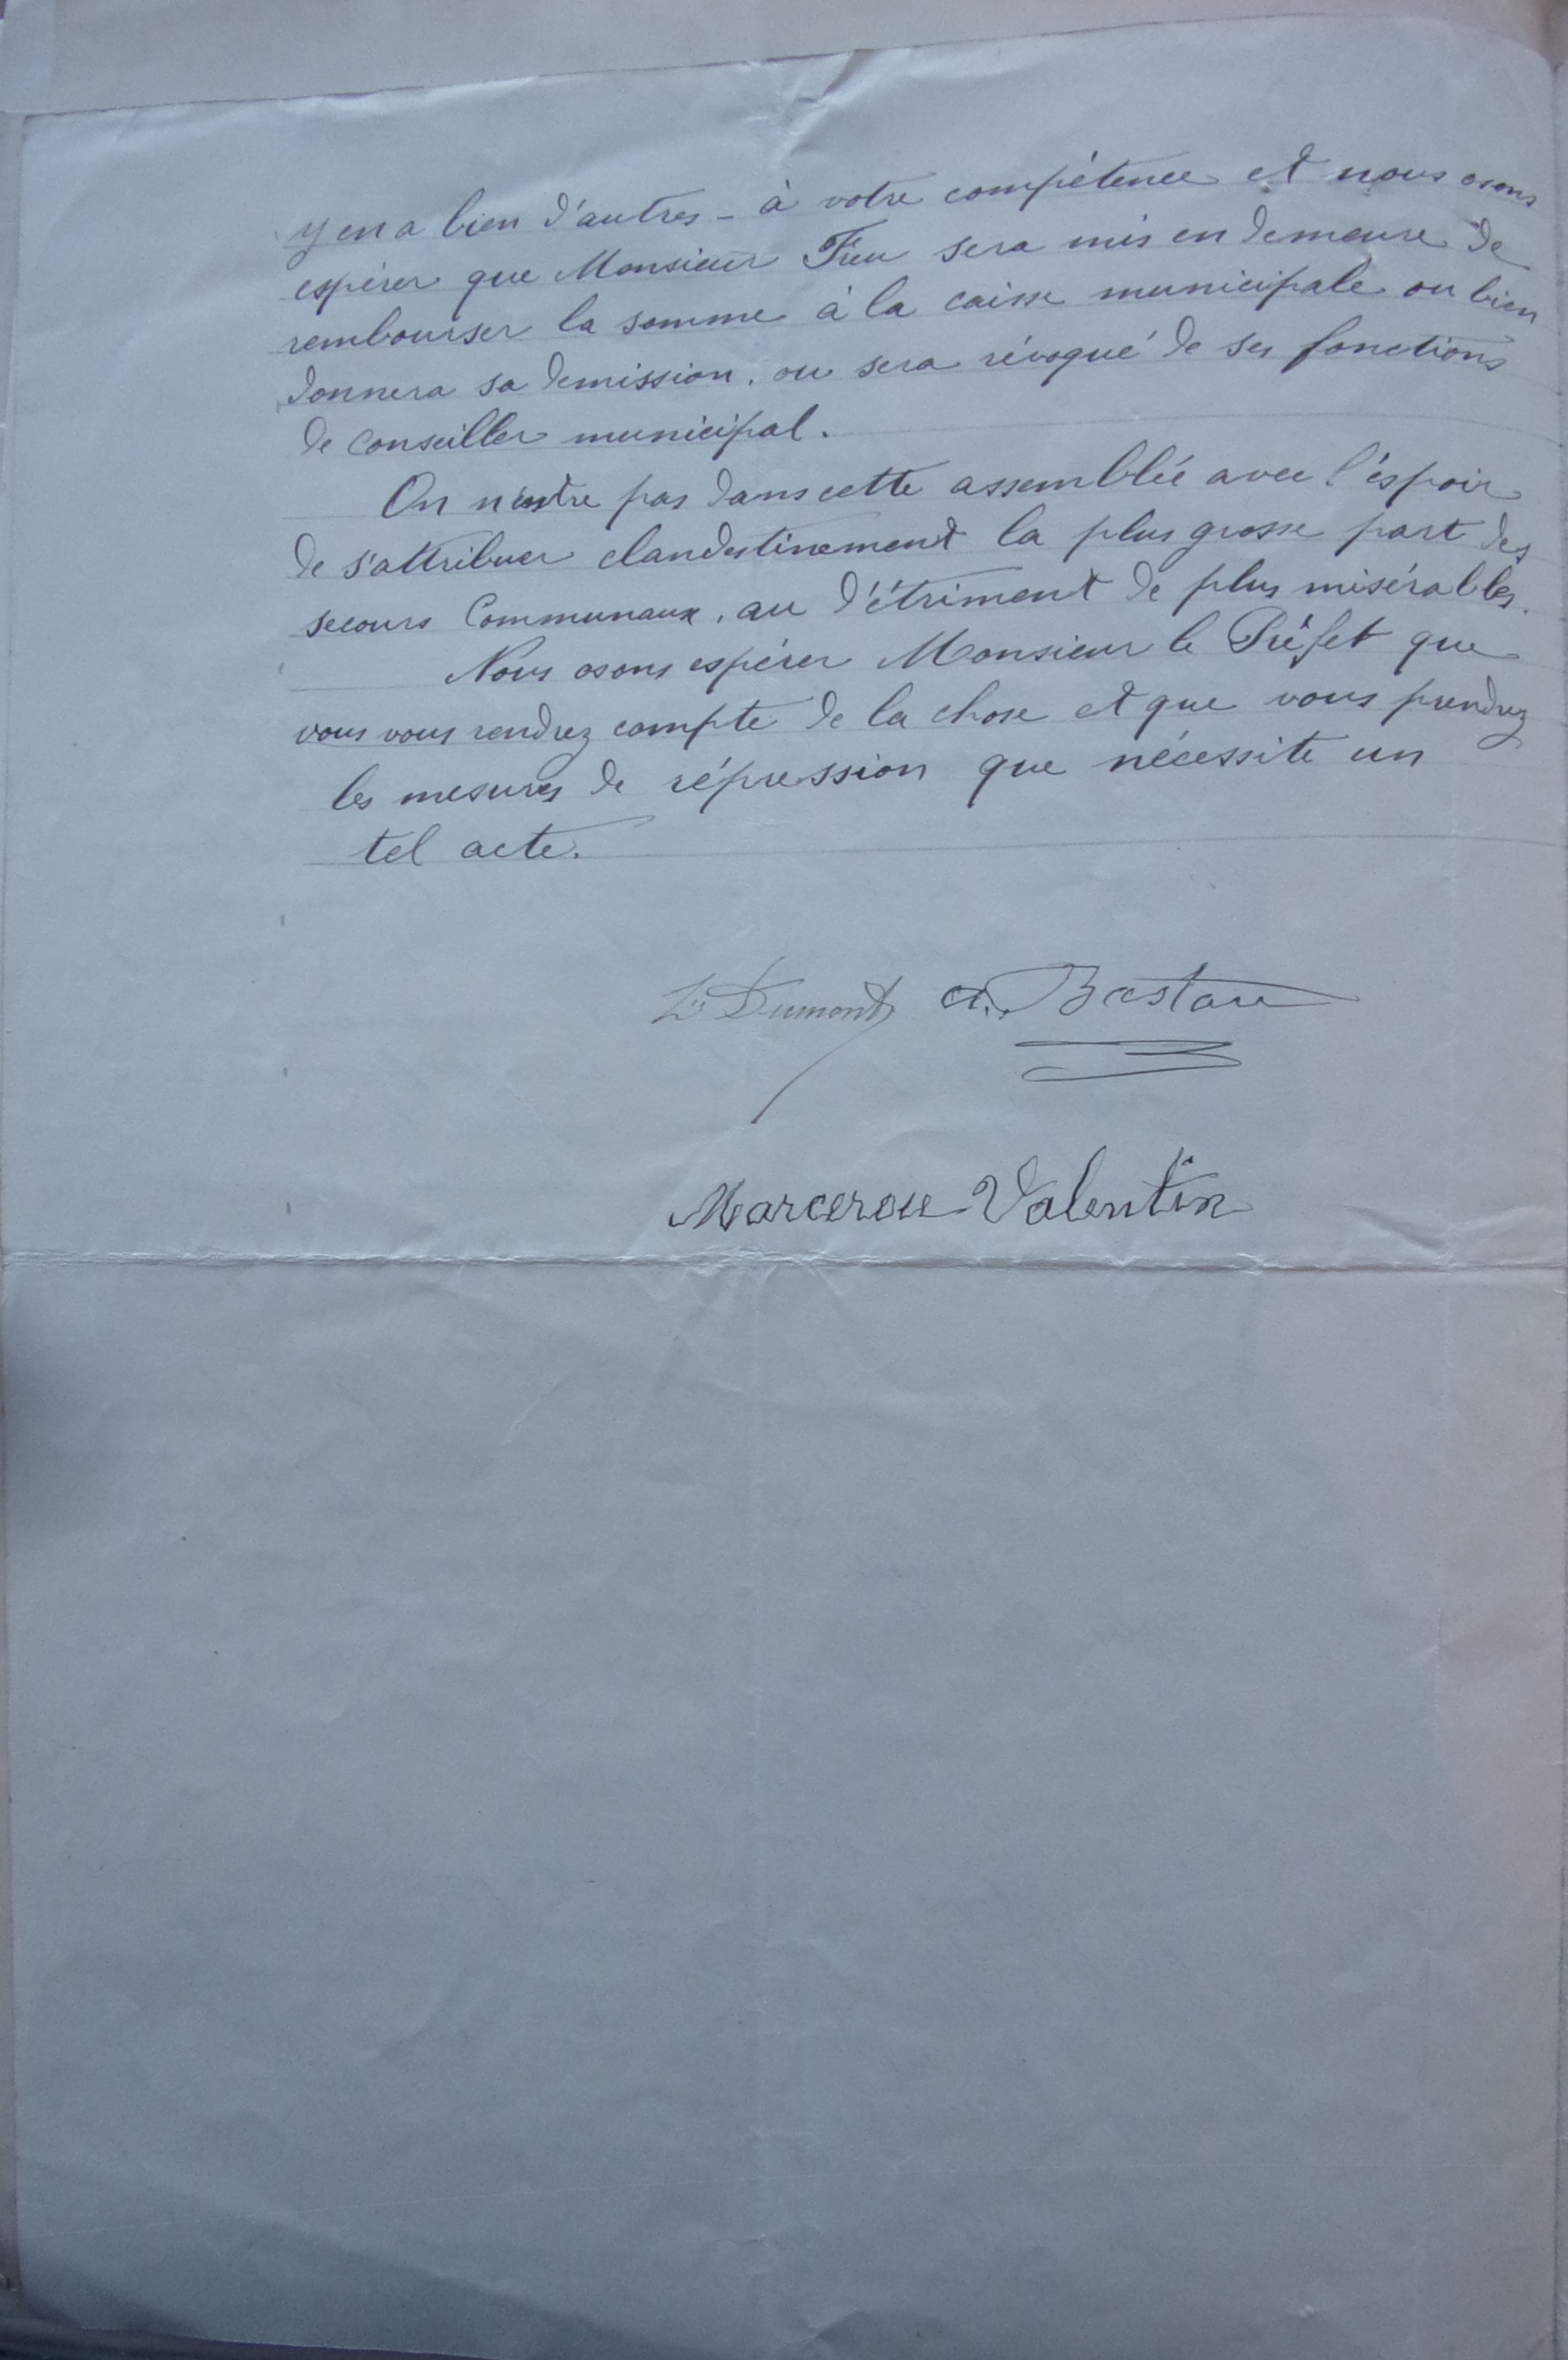 y en a bien d'autres - à votre compétence et nous osons
espérer que Monsieur Fieu sera mis en demeure de
rembourser la somme à la caisse municipale ou bien
donnera sa demission, ou sera révoqué de ses fonctions
de conseiller municipal.
On n'entre pas dans cette assemblée avec l'éspoir
de s'attribuer clandestinement la plus grosse part des
secours Communaux, au d'étriment de plus misérables.
Nous osons espérer Monsieur le Préfet que
vous vous rendrez compte de la chose et que vous prendrez
les mesures de répression que nécessite un
tel acte.
Ls Dumont A. Bastou
Marcerou Valentin